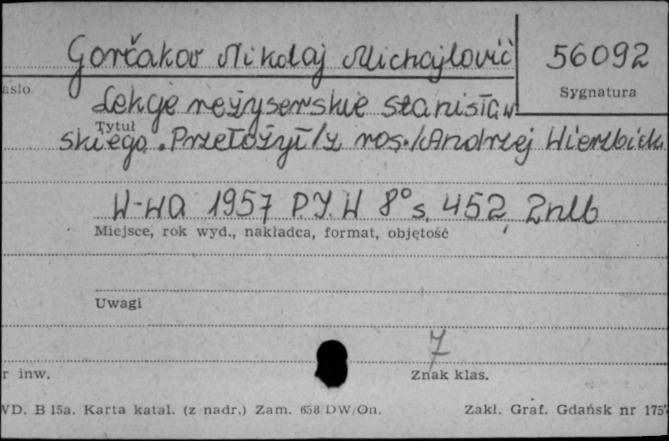 Gorčakov Nikolaj Michajlovič
56092
asło
Sygnatura
Lekcje reżyserskie Stanisław
Tytuł
skiego. Przełożył /z ros./ Andrzej Wierzbicki
W-wa 1957 P.I.W 8° s. 452, 2nlb
Miejsce, rok wyd., nakładca, format, objętość
Uwagi
7
r inw.
Znak klas.
VD. B 15a. Karta katal. (z nadr.) Zam. 658 DW/On.
Zakł. Graf. Gdańsk nr 1757